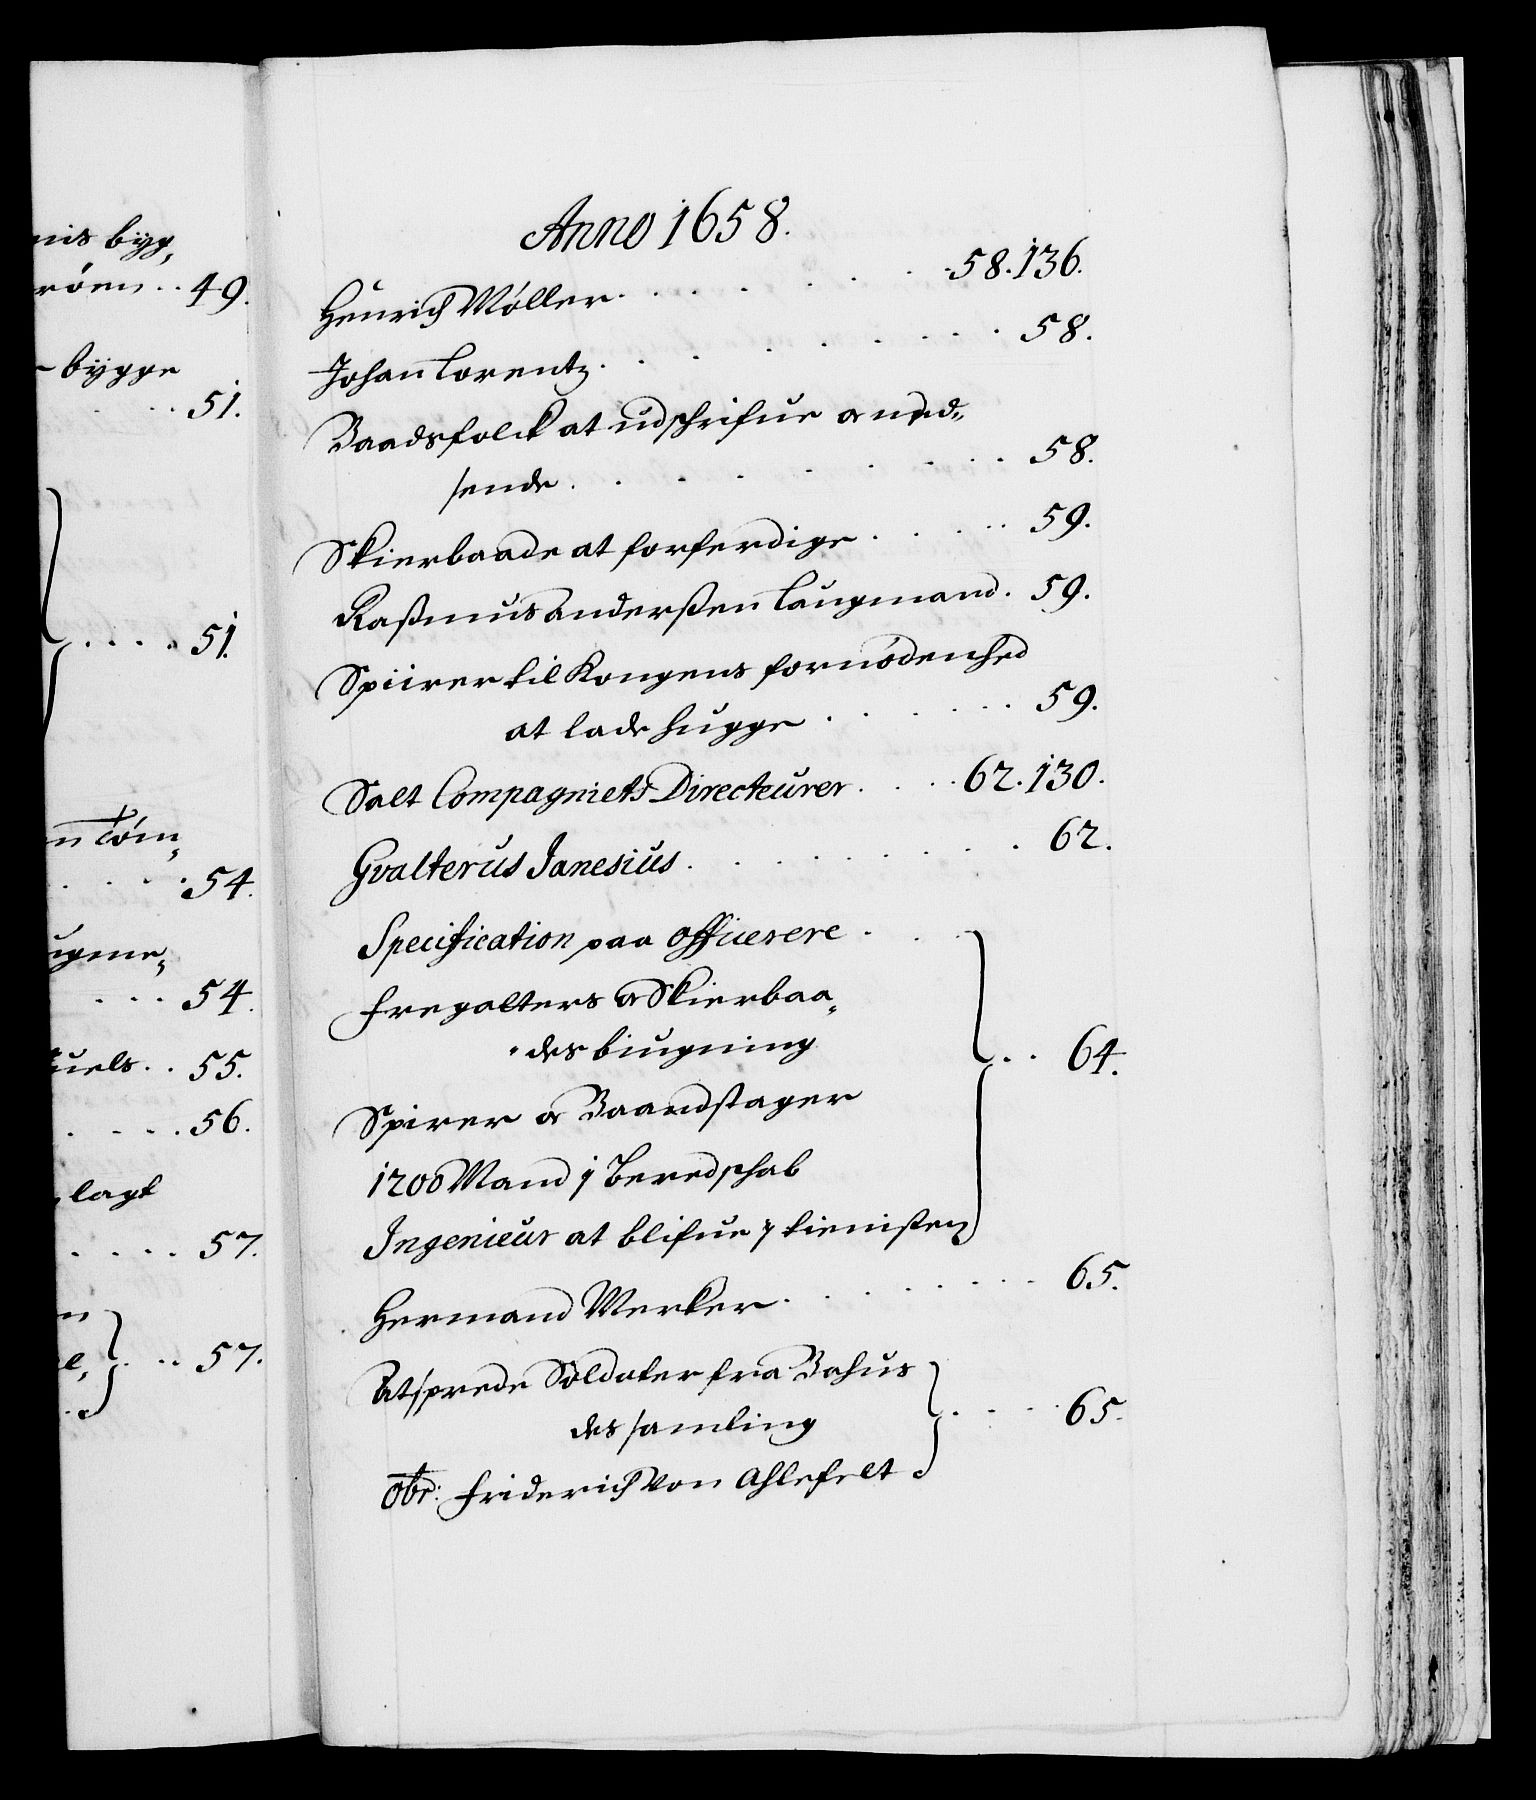 nis byg,
röen .. 49.
bygge
.. 51.
.... 51.
n Töm,
. 54.
ugme,
... 54.
uels .. 55.
.... 56.
lagt
.... 57.
n
.. 57.
Anno 1658.
Henrich Møller . . . . . . 58. 136.
Johan Lorentz . . . . . . . 58.
Baadsfolck at udschrifue & ned„
sende . . . . . . . 58.
Skierbaade at forferdige . . . . . 59.
Rasmus Anderssen Laugmand . 59.
Spiirer til Kongens fornödenhed
at lade hugge . . . . . . 59.
Salt Compagniets Directeurer . . . . 62. 130.
Gvalterus Janesius . . . . . . . 62.
Specification paa Officerere . . .
Fregatters & Skierbaa„
„des biugning
Spirer & Baandstager
1200 Mand j Beredschab
Ingenieur at blifue j tienisten
.. 64.
Hermand Merker . . . . . . . 65.
Atsprede Soldater fra Bahus
des samling
. . . . 65.
Obr: Friderich von Ahlefelt